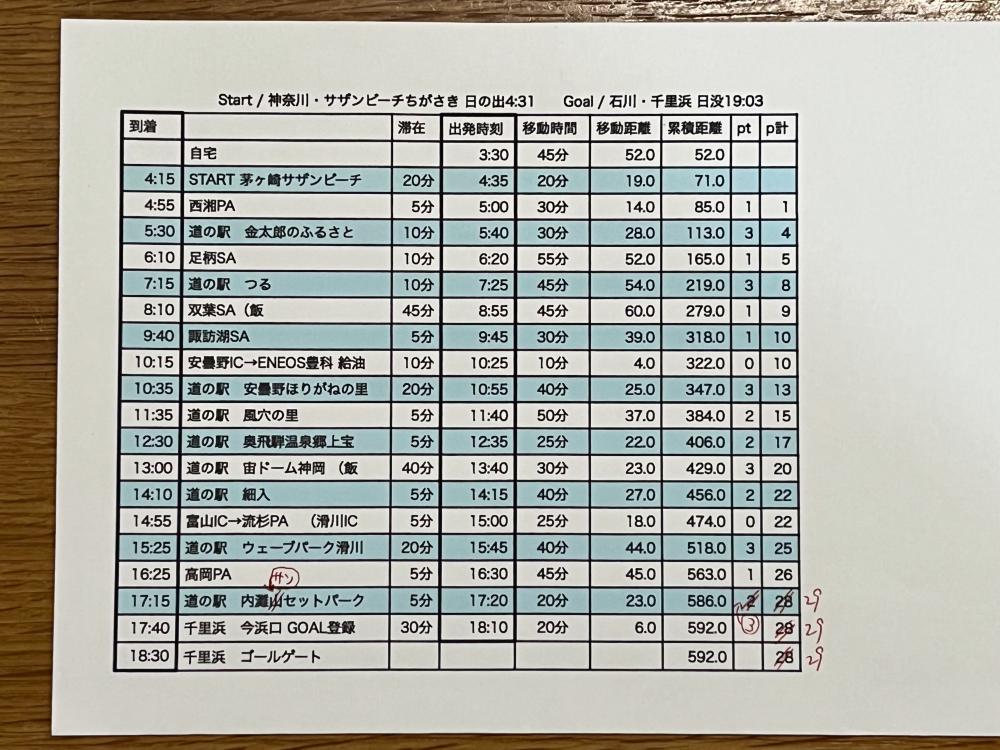 Start / 神奈川・サザンビーチちがさき 日の出4:31 Goal / 石川・千里浜 日没19:03
到着 滞在 出発時刻 移動時間 移動距離 累積距離 pt p計
自宅 3:30 45分 52.0 52.0
4:15 START 茅ヶ崎サザンビーチ 20分 4:35 20分 19.0 71.0
4:55 西湘PA 5分 5:00 30分 14.0 85.0 1 1
5:30 道の駅 金太郎のふるさと 10分 5:40 30分 28.0 113.0 3 4
6:10 足柄SA 10分 6:20 55分 52.0 165.0 1 5
7:15 道の駅 つる 10分 7:25 45分 54.0 219.0 3 8
8:10 双葉SA（飯 45分 8:55 45分 60.0 279.0 1 9
9:40 諏訪湖SA 5分 9:45 30分 39.0 318.0 1 10
10:15 安曇野IC→ENEOS豊科 給油 10分 10:25 10分 4.0 322.0 0 10
10:35 道の駅 安曇野ほりがねの里 20分 10:55 40分 25.0 347.0 3 13
11:35 道の駅 風穴の里 5分 11:40 50分 37.0 384.0 2 15
12:30 道の駅 奥飛騨温泉郷上宝 5分 12:35 25分 22.0 406.0 2 17
13:00 道の駅 宙ドーム神岡 （飯 40分 13:40 30分 23.0 429.0 3 20
14:10 道の駅 細入 5分 14:15 40分 27.0 456.0 2 22
14:55 富山IC→流杉PA （滑川IC 5分 15:00 25分 18.0 474.0 0 22
15:25 道の駅 ウェーブパーク滑川 20分 15:45 40分 44.0 518.0 3 25
16:25 高岡PA 5分 16:30 45分 45.0 563.0 1 26
サン
17:15 道の駅 内灘山セットパーク 5分 17:20 20分 23.0 586.0 2 28 29
17:40 千里浜 今浜口 GOAL登録 30分 18:10 20分 6.0 592.0 3 28 29
18:30 千里浜 ゴールゲート 592.0 28 29